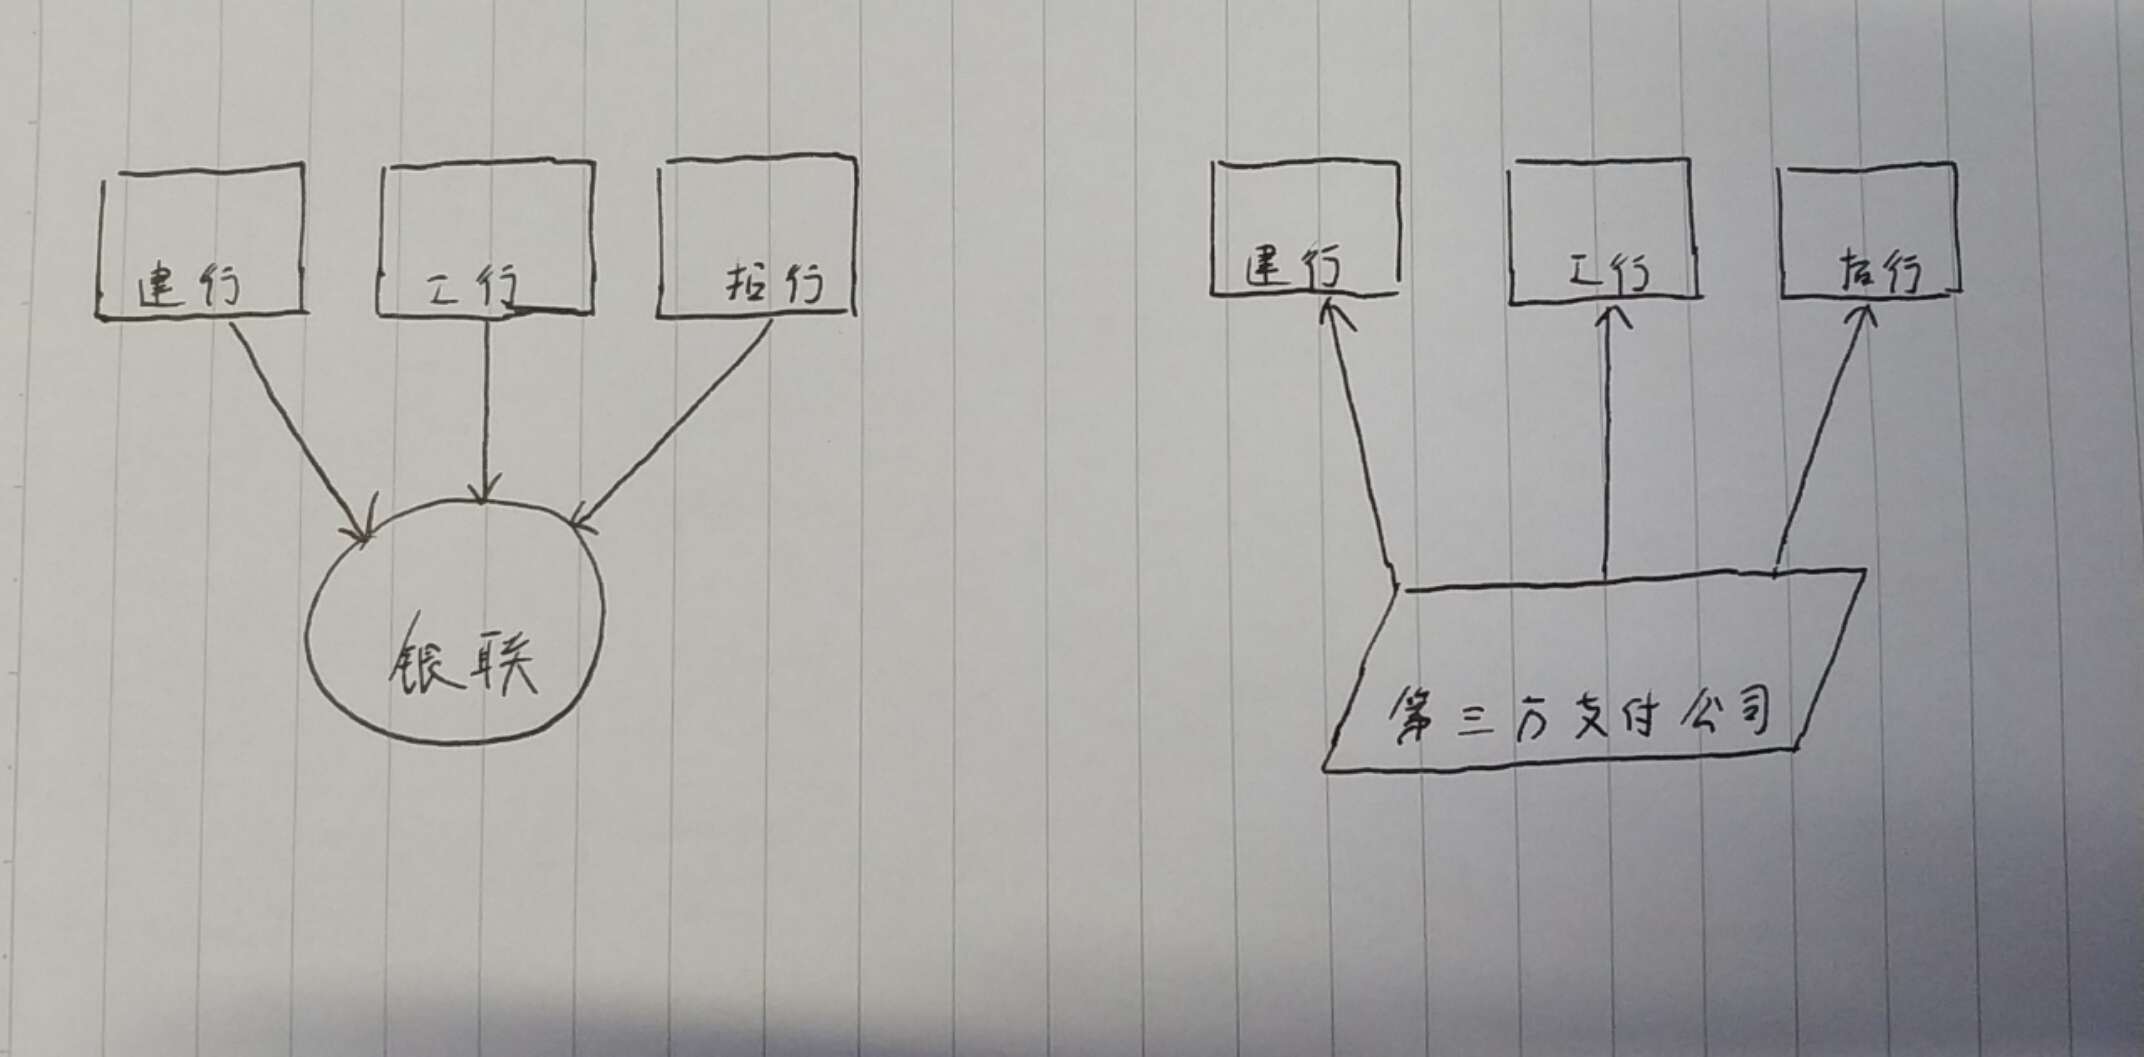 建行 工行 招行
银联
建行 工行 招行
第三方支付公司